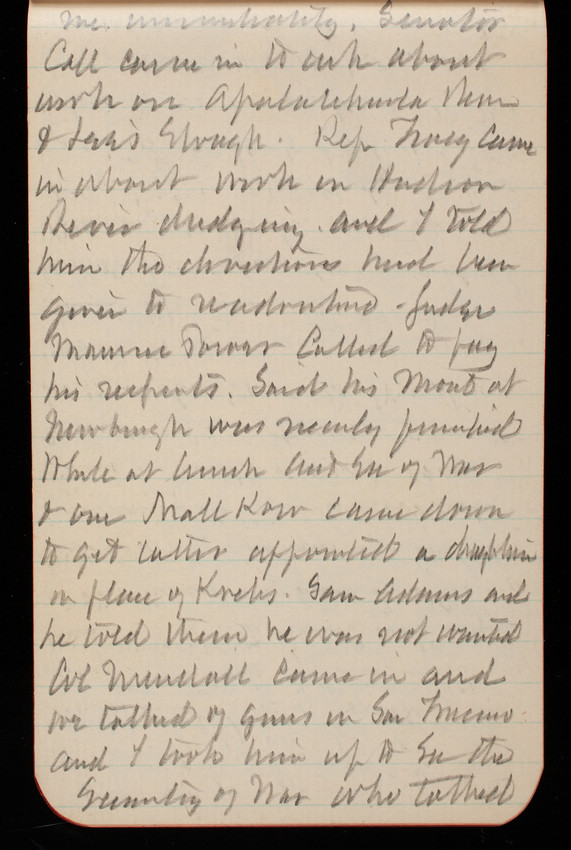 me. Senator
Call came in to ask about
work on Apalachicola River
& Lees Slough. Rep Tracy came
in about work on Hudson
River dredging and I told
him the directions had been
given to readvertise. Judge
Maurice Power called to pay
his respects. Said his Mont at
Newburgh was nearly finished
While at lunch Asst Sec of War
& one came down
to get latter appointed a draughtsman
in place of Krebs. Saw Adams and
he told them he was not wanted
Col Mendell came in and
we talked of guns in San Francisco
and I took him up to see the
Secretary of War who talked